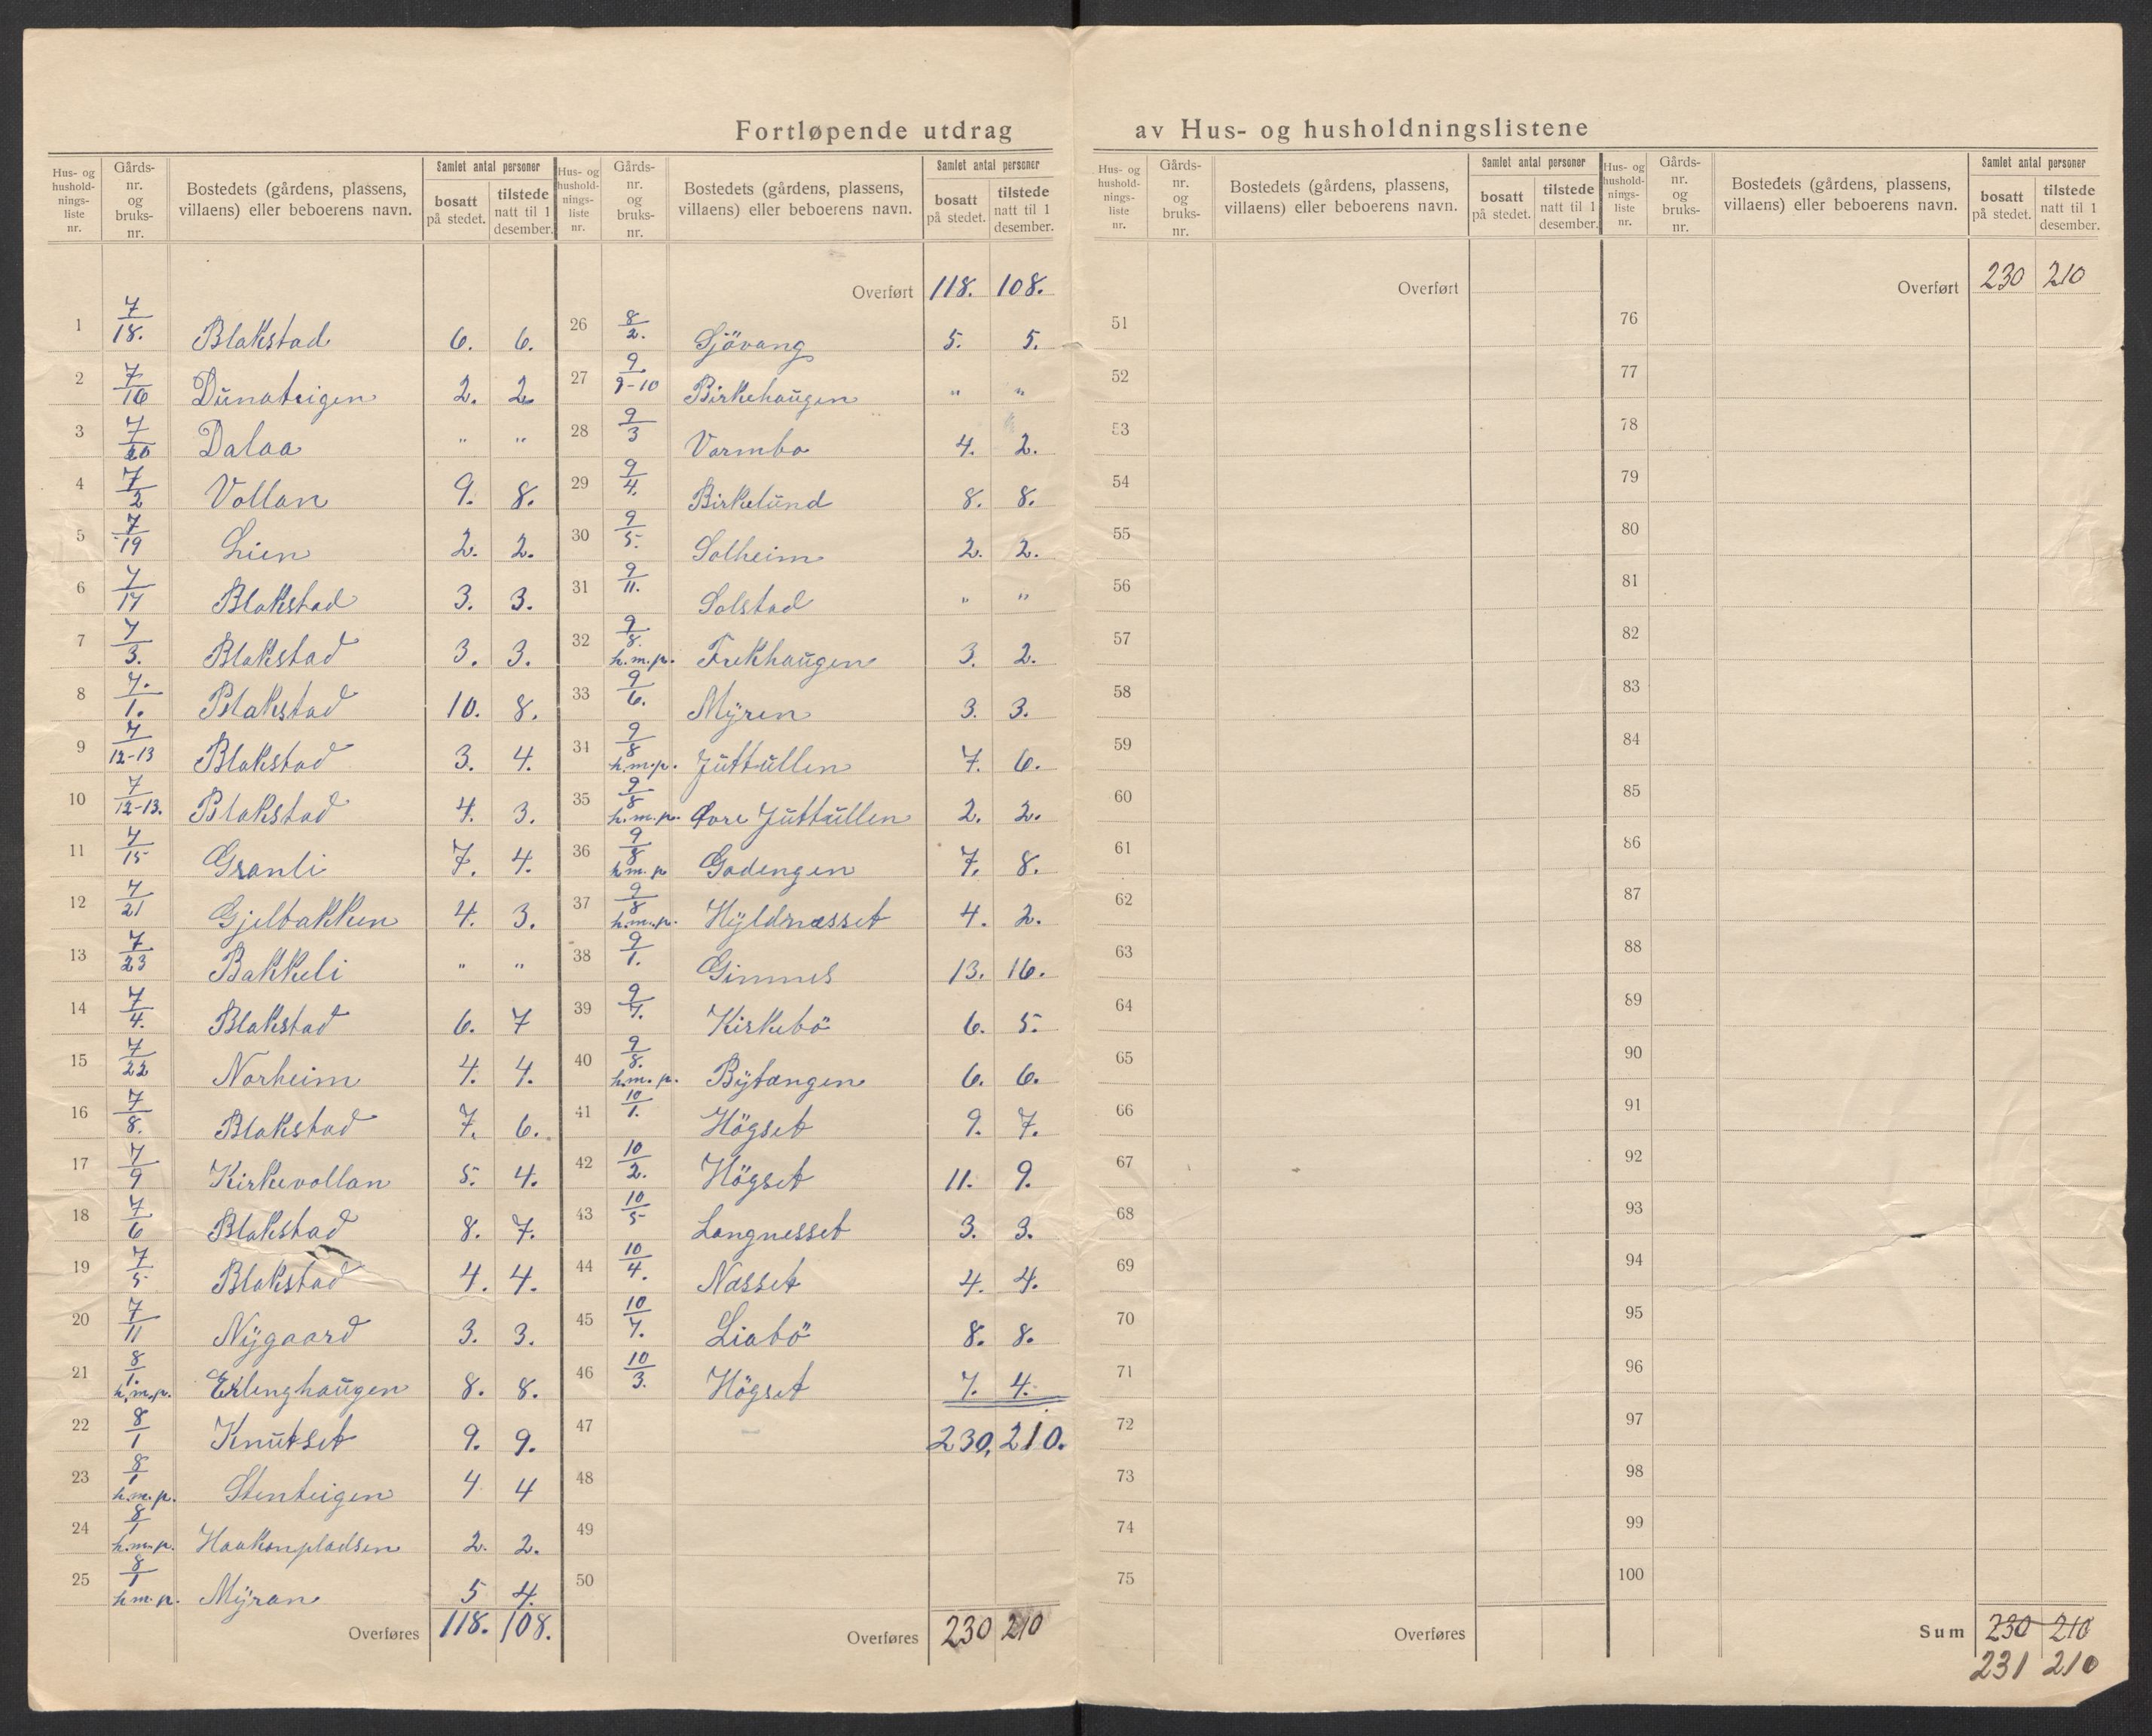 Fortløpende utdrag av Hus- og husholdningslistene
Hus- og husholdnings-liste nr. | Gårds-nr. og bruks-nr. | Bostedets (gårdens, plassens, villaens) eller beboerens navn. | Samlet antal personer | bosatt på stedet. | tilstede natt til 1 desember.
1 7/18. Blakstad 6. 6.
2 7/16 Dünateigen 2. 2
3 7/20 Dalaa " "
4 7/2 Vollan 9. 8.
5 7/19 Lien 2. 2.
6 7/17 Blakstad 3. 3.
7 7/3. Blakstad 3. 3.
8 7./1. Blakstad 10. 8.
9 7/12-13 Blakstad 3. 4.
10 7/12-13. Blakstad 4. 3.
11 7/15 Granli 7. 4.
12 7/21 Gjelbakken 4. 3.
13 7/23 Bakkeli " "
14 7/4. Blakstad 6. 7
15 7/22 Norheim 4. 4.
16 7/8. Blakstad 7. 6.
17 7/9 Kirkevollan 5. 4.
18 7/6 Blakstad 8. 7.
19 7/5 Blakstad 4. 4.
20 7/11 Nÿgaard 3. 3.
21 8/1. h.m.p. Erlinghaügen 8. 8.
22 8/1 Knütset 9. 9.
23 8/1 h.m.p. Stenteigen 4 4
24 8/1 h.m.p. Haakonpladsen 2. 2.
25 8/1 h.m.p. Mÿran 5 4.
Overføres 118. 108.
Hus- og husholdnings-liste nr. | Gårds-nr. og bruks-nr. | Bostedets (gårdens, plassens, villaens) eller beboerens navn. | Samlet antal personer | bosatt på stedet. | tilstede natt til 1 desember.
Overført 118. 108.
26 8/2. Sjövang 5. 5.
27 9/9-10 Birkehaügen " "
28 9/3 Varmbo 4. 2.
29 9/4. Birkelünd 8. 8.
30 9/5. Solheim 2. 2.
31 9/11. Solstad " "
32 9/8. h.m.p. Frekhaügen 3. 2.
33 9/6. Mÿren 3. 3.
34 9/8 h.m.p. Jüttüllen 7. 6.
35 9/8 h.m.p. Øvre Jüttüllen 2. 2.
36 9/8 h.m.p Gadengen 7. 8.
37 9/8 h.m.p. Hÿldnæsset 4. 2.
38 9/1. Gimnes 13. 16.
39 9/7. Kirkebö 6. 5.
40 9/8. h.m.p. Bÿtangen 6. 6.
41 10/1. Högset 9. 7.
42 10/2. Högset 11. 9.
43 10/5 Langnesset 3. 3.
44 10/4. Næsset 4. 4.
45 10/7. Liabö 8. 8.
46 10/3. Högset 7. 4.
47 230. 210.
48
49
50
Overføres 230 210
Hus- og husholdnings-liste nr. | Gårds-nr. og bruks-nr. | Bostedets (gårdens, plassens, villaens) eller beboerens navn. | Samlet antal personer | bosatt på stedet. | tilstede natt til 1 desember.
Overført
51
52
53
54
55
56
57
58
59
60
61
62
63
64
65
66
67
68
69
70
71
72
73
74
75
Overføres
Hus- og husholdnings-liste nr. | Gårds-nr. og bruks-nr. | Bostedets (gårdens, plassens, villaens) eller beboerens navn. | Samlet antal personer | bosatt på stedet. | tilstede natt til 1 desember.
Overført 230 210
76
77
78
79
80
81
82
83
84
85
86
87
88
89
90
91
92
93
94
95
96
97
98
99
100
Sum 230 210
231 210